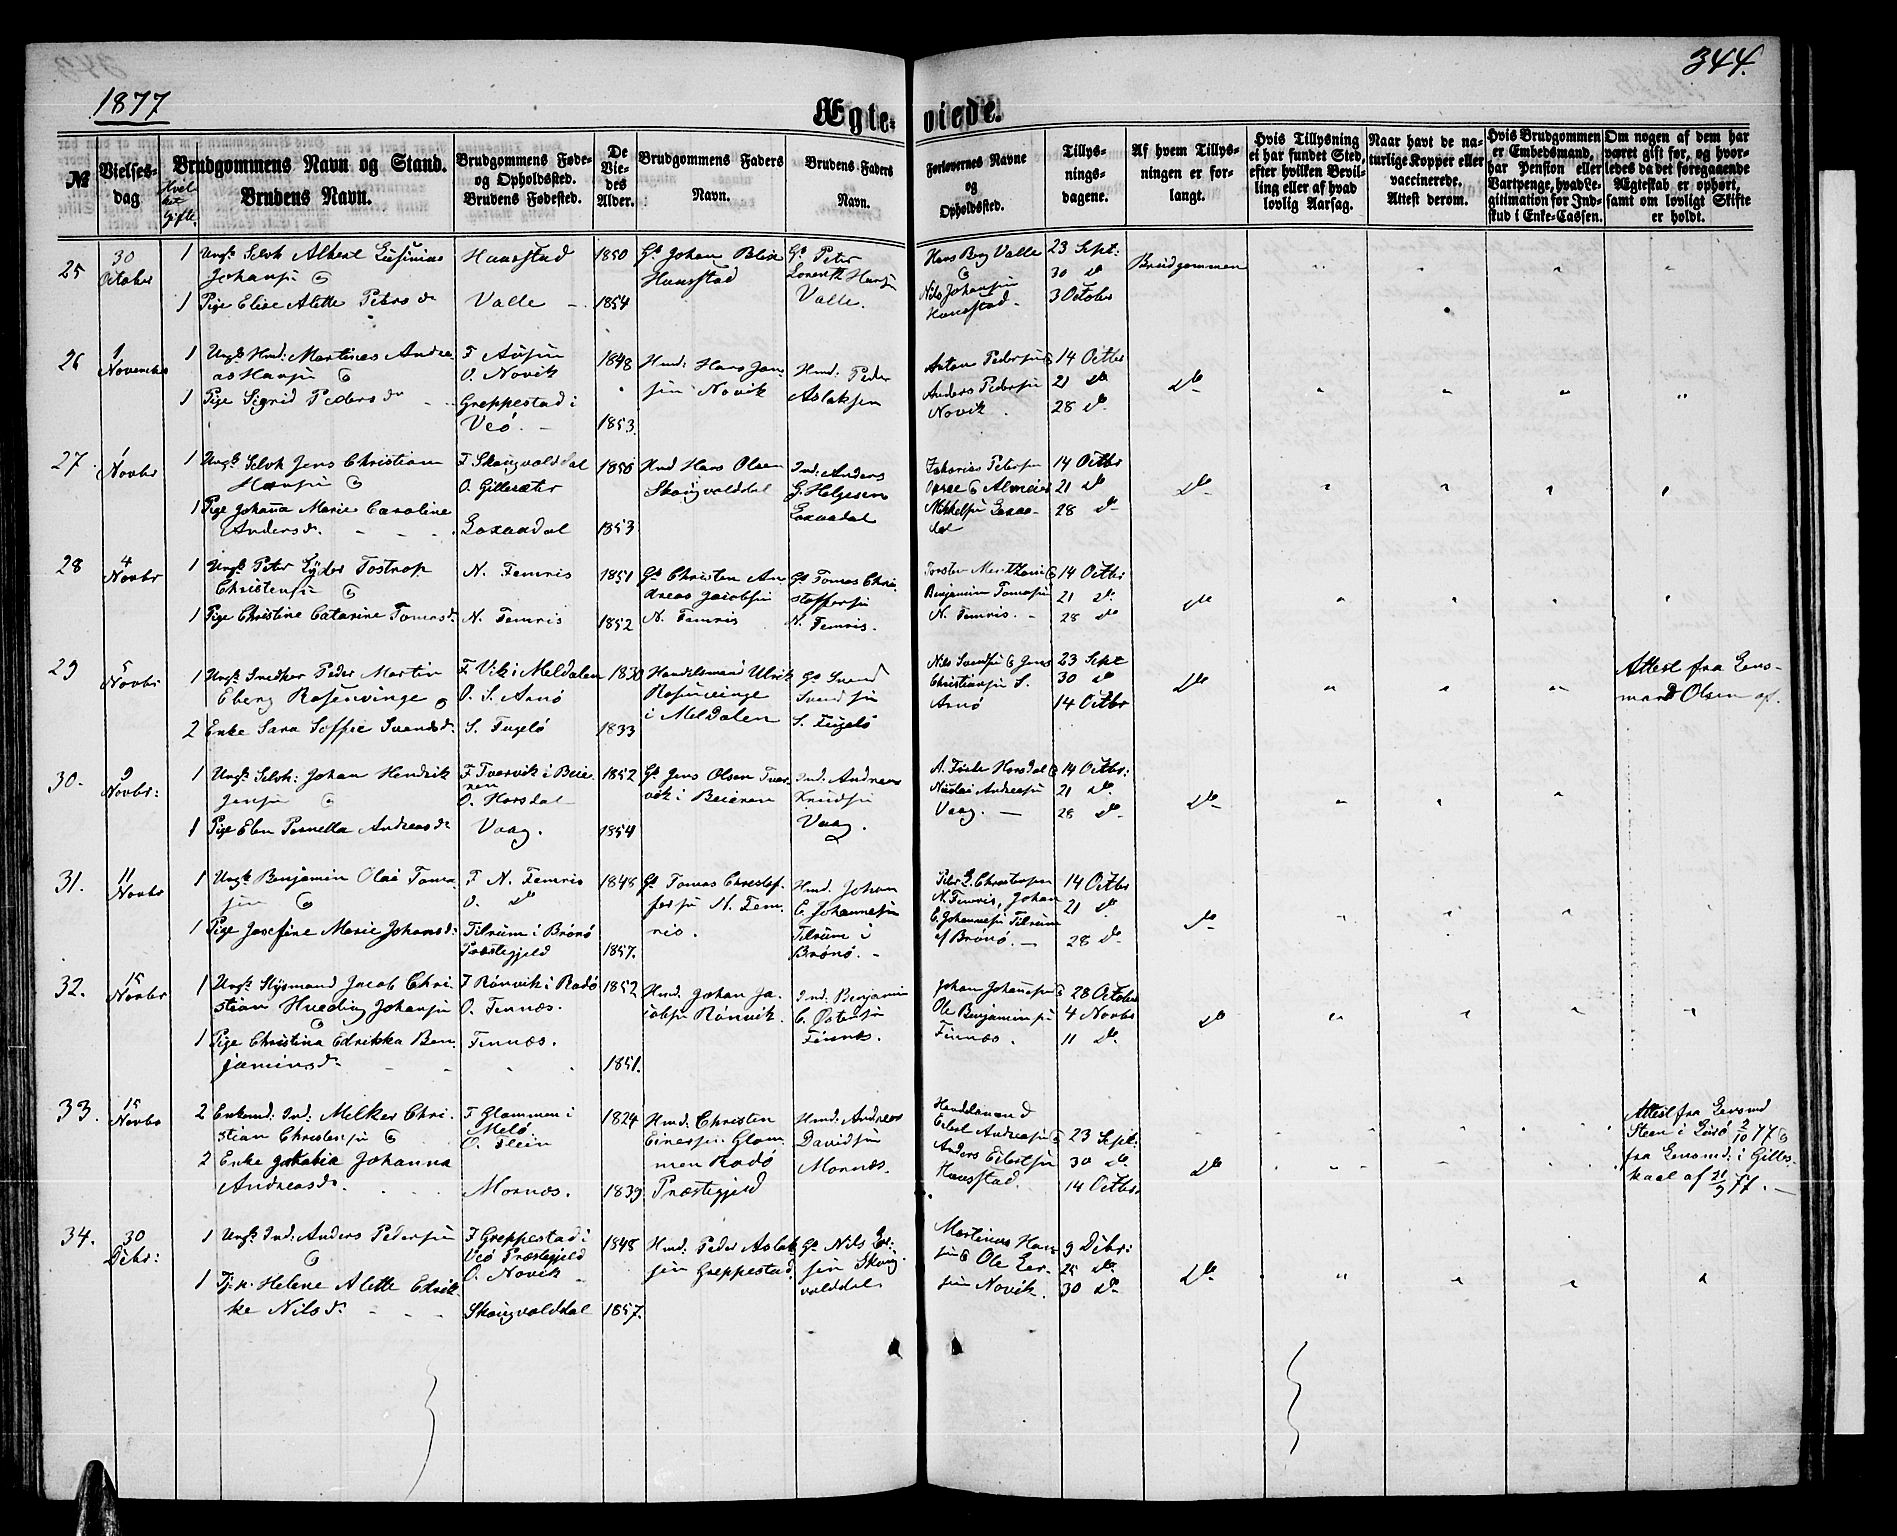 344.
1877
Ægte- viede.
№
Vielses-
dag
Brudgommens Navn og Stand.
Brudens Navn.
Brudgommens Føde-
og Opholdssted.
Brudens Fødested.
De
Vie-
des
Alder.
Brudgommens Faders
Navn.
Brudens Faders
Navn.
Forlovernes Navne
og
Opholdssted.
Tillys-
nings-
dagene.
Af hvem Tillys-
ningen er for-
langt.
Hvis Tillysning
ei har fundet Sted,
efter hvilken Bevil-
ling eller af hvad
lovlig Aarsag.
Naar havt de na-
turlige Kopper eller
vaccinerede.
Attest derom.
Hvis Brudgommen
er Embedsmand,
har Pension eller
Vartpenge, hvad Le-
gitimation for Ind-
skud i Enke-Cassen.
Om nogen af dem har
været gift før, og hvor-
ledes da det foregaaende
Ægteskab er ophørt,
samt om lovligt Skifte
er holdt.
25
30
October
1 Ungk. Selvh Albert
Johansen
1 Pige Elise Alette Peters dr
Haasstad
Valle
1850
1854
Gb. Johan
Gb. Peter
Valle.
Hans Berg Valle
Nils Johansen
23 Sept:
30 do
3 October
Brudgommen
26
1
November
1 Ungk. Hmd: Martines Andre-
as Hansen
1 Pige Sigrid Peders dr
O. Novik
Greppestad i
Veø.
1848
1853.
Hmd: Hans Jen-
sen Novik
Hmd: Peder
Aslaksen
Anton Pedersen
Anders Pedersen
Novik.
14 Octbr
21 do
28 do
do
27.
1
Novbr
1 Ungk. Selvh Jens Christian
Hansen
1 Pige Johanna Marie Caroline
Anders dr
F Skaugvolddal
O. Gillesæter
1850
1853
Hmd Hans Olsen
Skaugvolddal
Ind: Anders
G. Helgesen
14 Octbr
21 do
28 do
do
28
4
Novbr
1 Ungk. Peter Eyder Tostrop
Christensen
1 Pige Christine Catarine Tomas dr
N. Femris
N. Femris
1851
1852
Gb Christen An-
dreas Jacobsen
N. Femris
Gb Tomas Chri-
stoffersen
N. Femris.
Benjamin Tomasen
N. Femris.
14 Octbr
21 do
28 do
do
29
5
Novbr
1 Ungk. Snedker Peder Martin
Eberg Rosenvinge
2 Enke Sara Soffie Svends dr
F Vik i Meldalen
O. S. Arnø
S. Fugelø
1830
1833
Handelsmand Ulrik
Rosenvinge
i Meldalen
Gb Svend
Svendsen
S. Fugelø
Nils Svendsen & Jens
Christiansen S.
Arnø
23 Sept
30 do
14 Octbr
do
Attest fra Lens-
mand Olsen af.
30.
9
Novbr:
1 Ungk. Selvh: Johan Hendrik
Jensen
1 Pige Elen Pernella Andreas dr
F Tvervik i Beie-
ren
O. Horsdal
Vaag.
1852
1854
Gb Jens Olsen Tver-
vik i Beieren
Ind: Andreas
Knudsen
Vaag.
Nicolai Andreasen
Vaag.
14 Octbr:
21 do
28 do
do
31.
11
Novbr
1 Ungk Benjamin Olai Toma-
sen
1 Pige Josefine Marie Johans dr
F N. Femris
O. do
Tilrum i Brønø
Præstegjeld
1848
1857.
Gb Tomas Christof-
fersen N. Fem-
ris.
Hmd. Johan
C. Johannesen
Tilrum i
Brønø.
Peter E. Christensen
N. Femris, Johan
C. Johannesen Tilrum
af Brønø.
14 Octbr
21 do
28 do
do
32.
15
Novbr
1 Ungk. Jacob Chri-
stian Hveding Johansen
1 Pige Christina Edrikka Ben-
jamins dr
F Rønvik i Rødø
O. Fennæs.
Fennæs.
1852
1851.
Hmd. Johan Ja-
cobsen Rønvik.
Ind: Benjamin
C. Østensen
Fennes.
Johan Johansen
Ole Benjaminsen
Finnæs.
28 October
4 Novbr
11 do
do
33.
15
Novbr
2 Enkemd: Ind: Melker Chri-
stian Christensen
2 Enke Jakobia Johanna
Andreas dr
F Glommen i
Melø
O. Flein
Mornæs.
1824
1839
Hmd. Christen
Einersen Glom-
men Rødø
Præstegjeld
Hmd: Andreas
Davidsen
Mornæs.
Handelsmand
Eilert Andreasen
Anders Eilertsen
Haasstad.
23 Sept:
30 do
14 Octbr.
do
Attest fra Lensmd
Steen i 2/10 77 &
fra Lensmd: i Gilles-
kaal af 21/9 77.
34.
30
Decbr:
1 Ungk. Ind: Anders Pedersen
1 Tj.p. Helene Alette Edrik-
ke Nils dr
F Greppestad i
Veø Præstegjeld
O. Novik
Skaugvolddal
1848
1857.
Hmd: Peder Aslak-
sen Greppestad.
Gb Nils
Skaug-
volddal
Martinus Han-
sen & Ole
Novik.
9 Decbr:
25 do
30 do
do